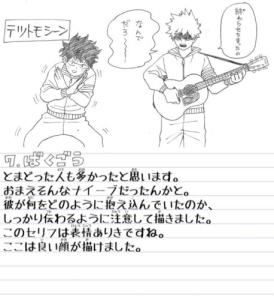 テツトモシーン
なんで
だろ〜〜
終わらせちまったの
7.ばくごう
とまどった人も多かったと思います。
おまえそんなナイーブだったんかと。
彼が何をどのように抱え込んでいたのか、
しっかり伝わるように注意して描きました。
このセリフは表情ありきですね。
ここは良い顔が描けました。